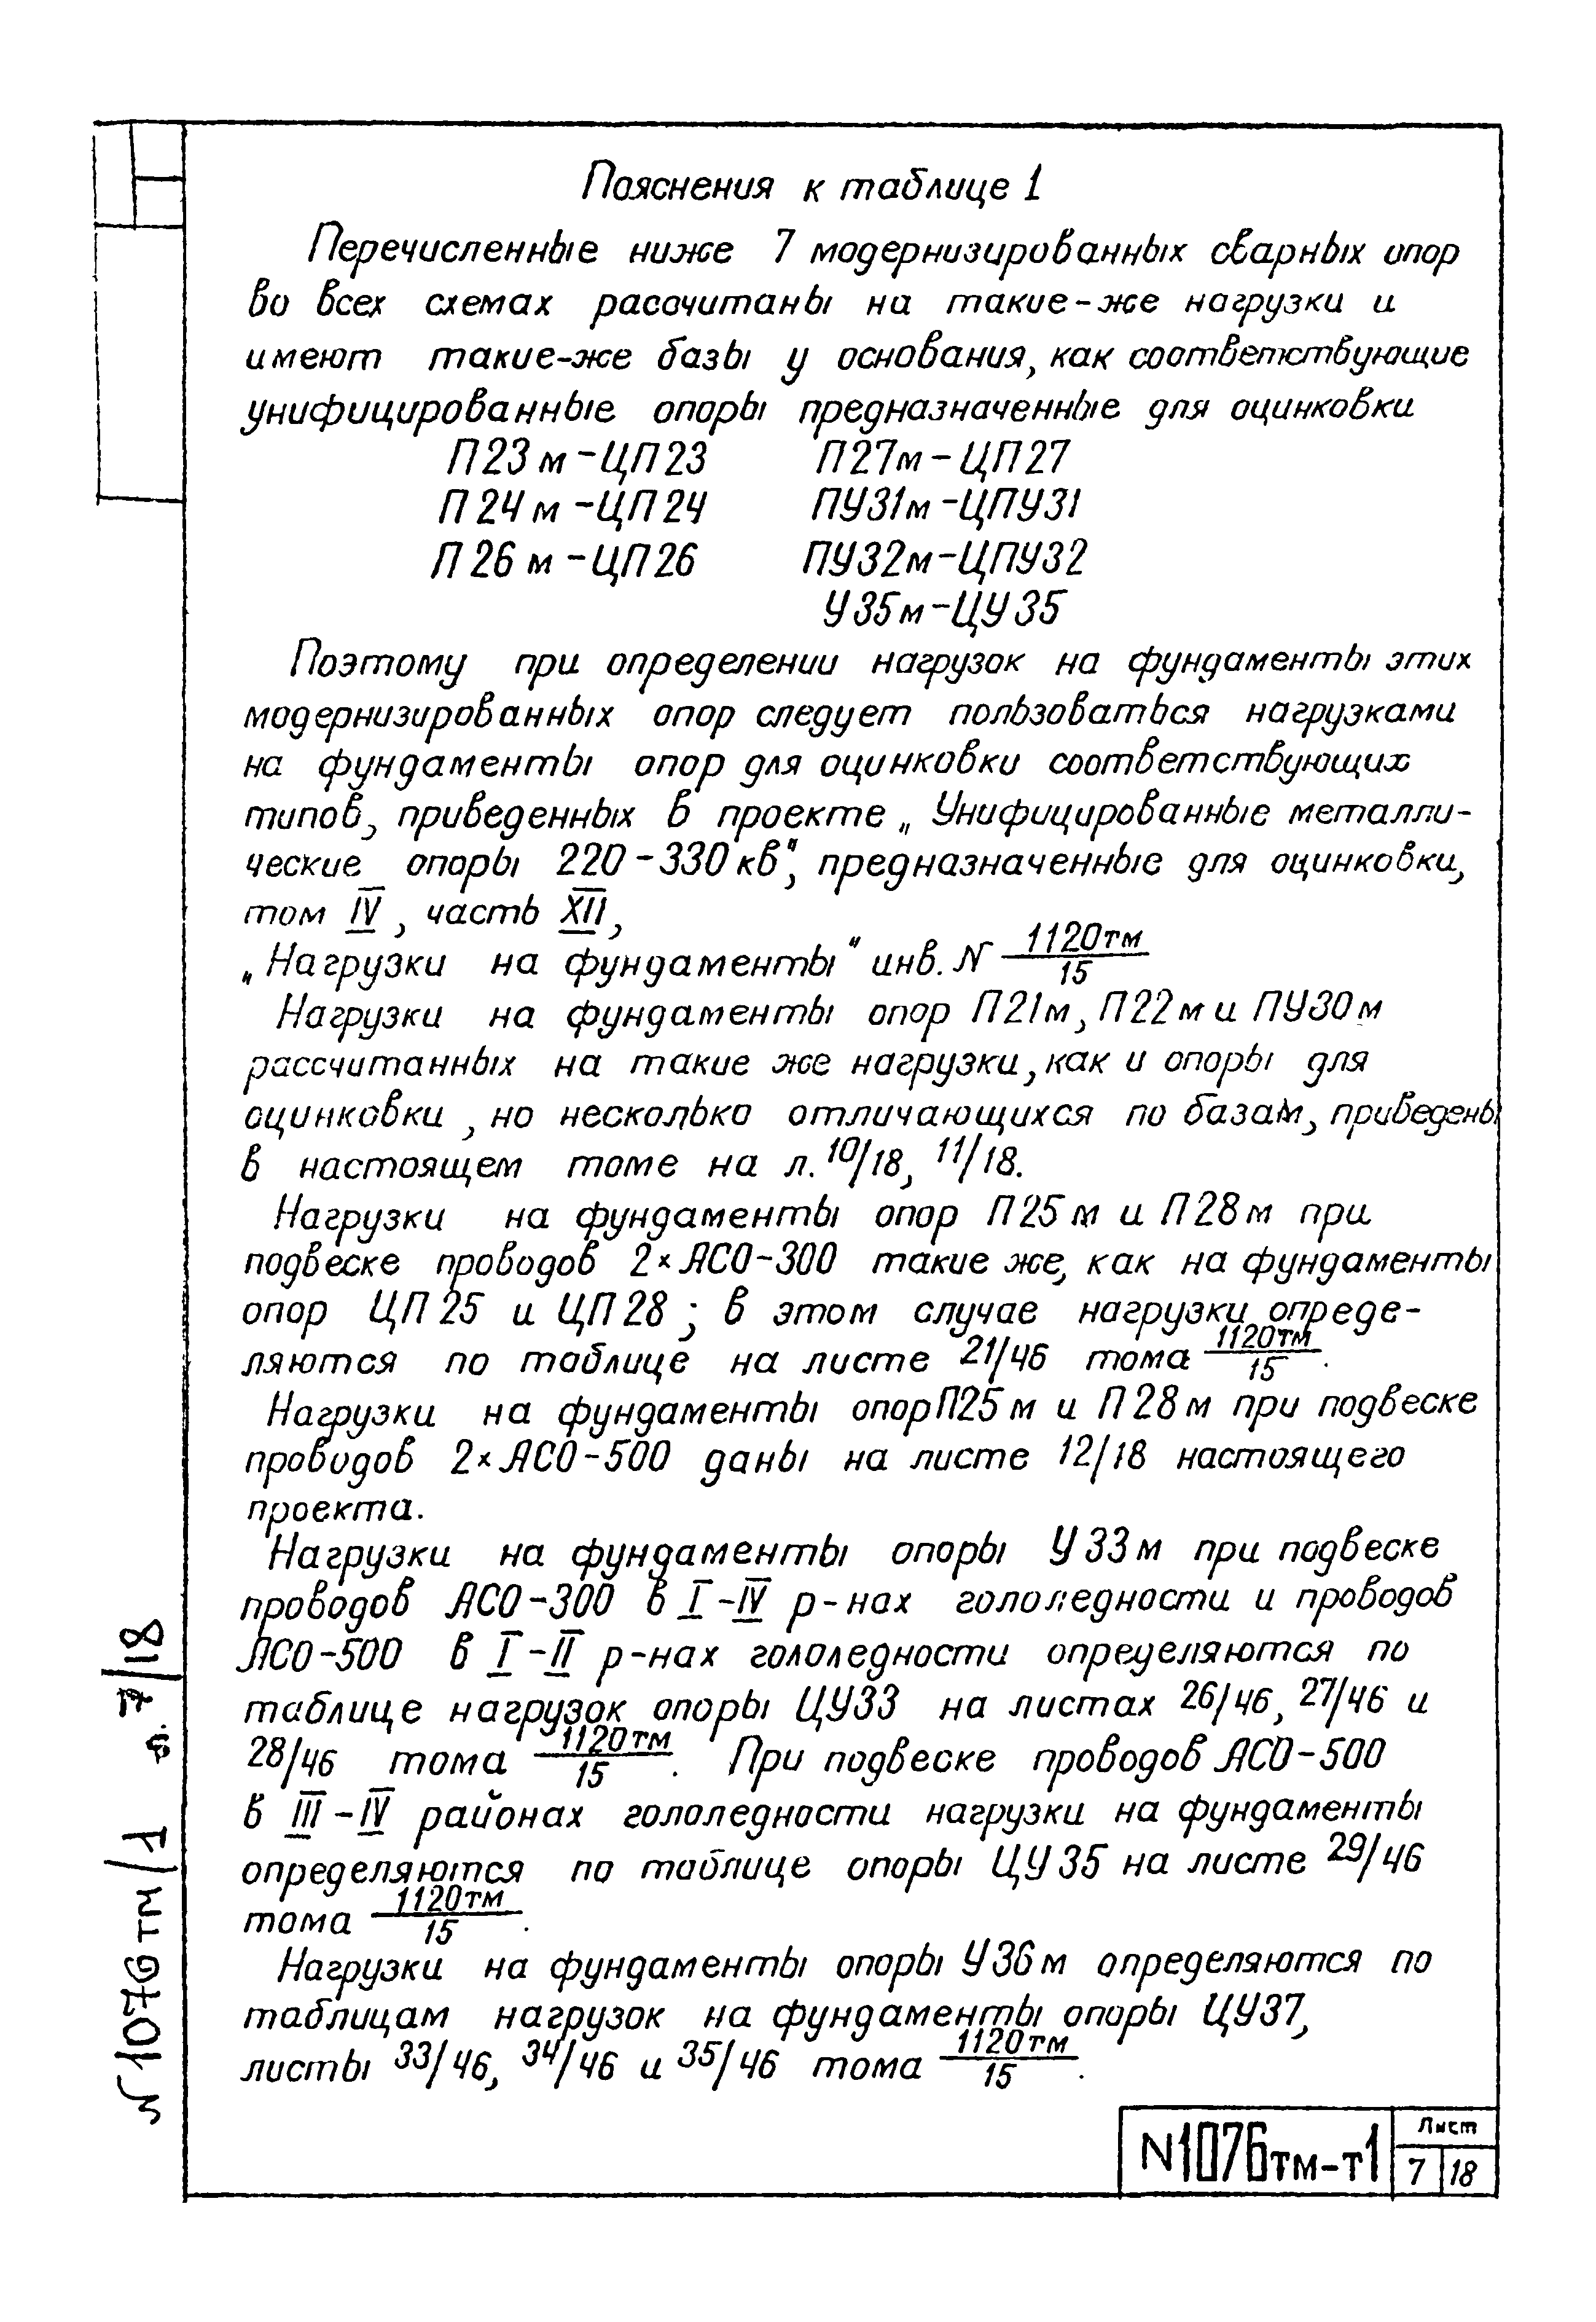 Пояснения к таблице 1
Перечисленные ниже 7 модернизированных сварных опор
во всех схемах рассчитаны на такие-же нагрузки и
имеют такие-же базы у основания, как соответствующие
унифицированные опоры предназначенные для оцинковки
П23м-ЦП23 П27м-ЦП27
П24м-ЦП24 ПУ31м-ЦПУ31
П26м-ЦП26 ПУ32м-ЦПУ32
У35м-ЦУ35
Поэтому при определении нагрузок на фундаменты этих
модернизированных опор следует пользоваться нагрузками
на фундаменты опор для оцинковки соответствующих
типов, приведенных в проекте „Унифицированные металли-
ческие опоры 220-330кв", предназначенные для оцинковки,
том IV, часть XII,
„Нагрузки на фундаменты" инв. N 1120тм/15
Нагрузки на фундаменты опор П21м, П22м и ПУ30м
рассчитанных на такие же нагрузки, как и опоры для
оцинковки, но несколько отличающихся по базам, приведены
в настоящем томе на л. 10/18, 11/18.
Нагрузки на фундаменты опор П25м и П28м при
подвеске проводов 2×АСО-300 такие же, как на фундаменты
опор ЦП25 и ЦП28; в этом случае нагрузки опреде-
ляются по таблице на листе 21/46 тома 1120тм/15.
Нагрузки на фундаменты опор П25м и П28м при подвеске
проводов 2×АСО-500 даны на листе 12/18 настоящего
проекта.
Нагрузки на фундаменты опоры У33м при подвеске
проводов АСО-300 в I-IV р-нах гололедности и проводов
АСО-500 в I-II р-нах гололедности определяются по
таблице нагрузок опоры ЦУ33 на листах 26/46, 27/46 и
28/46 тома 1120тм/15. При подвеске проводов АСО-500
в III-IV районах гололедности нагрузки на фундаменты
определяются по таблице опоры ЦУ35 на листе 29/46
тома 1120тм/15.
Нагрузки на фундаменты опоры У36м определяются по
таблицам нагрузок на фундаменты опоры ЦУ37,
листы 33/46, 34/46 и 35/46 тома 1120тм/15.
N1076тм-т1
Лист
7 18
N 1076тм/1 7/18